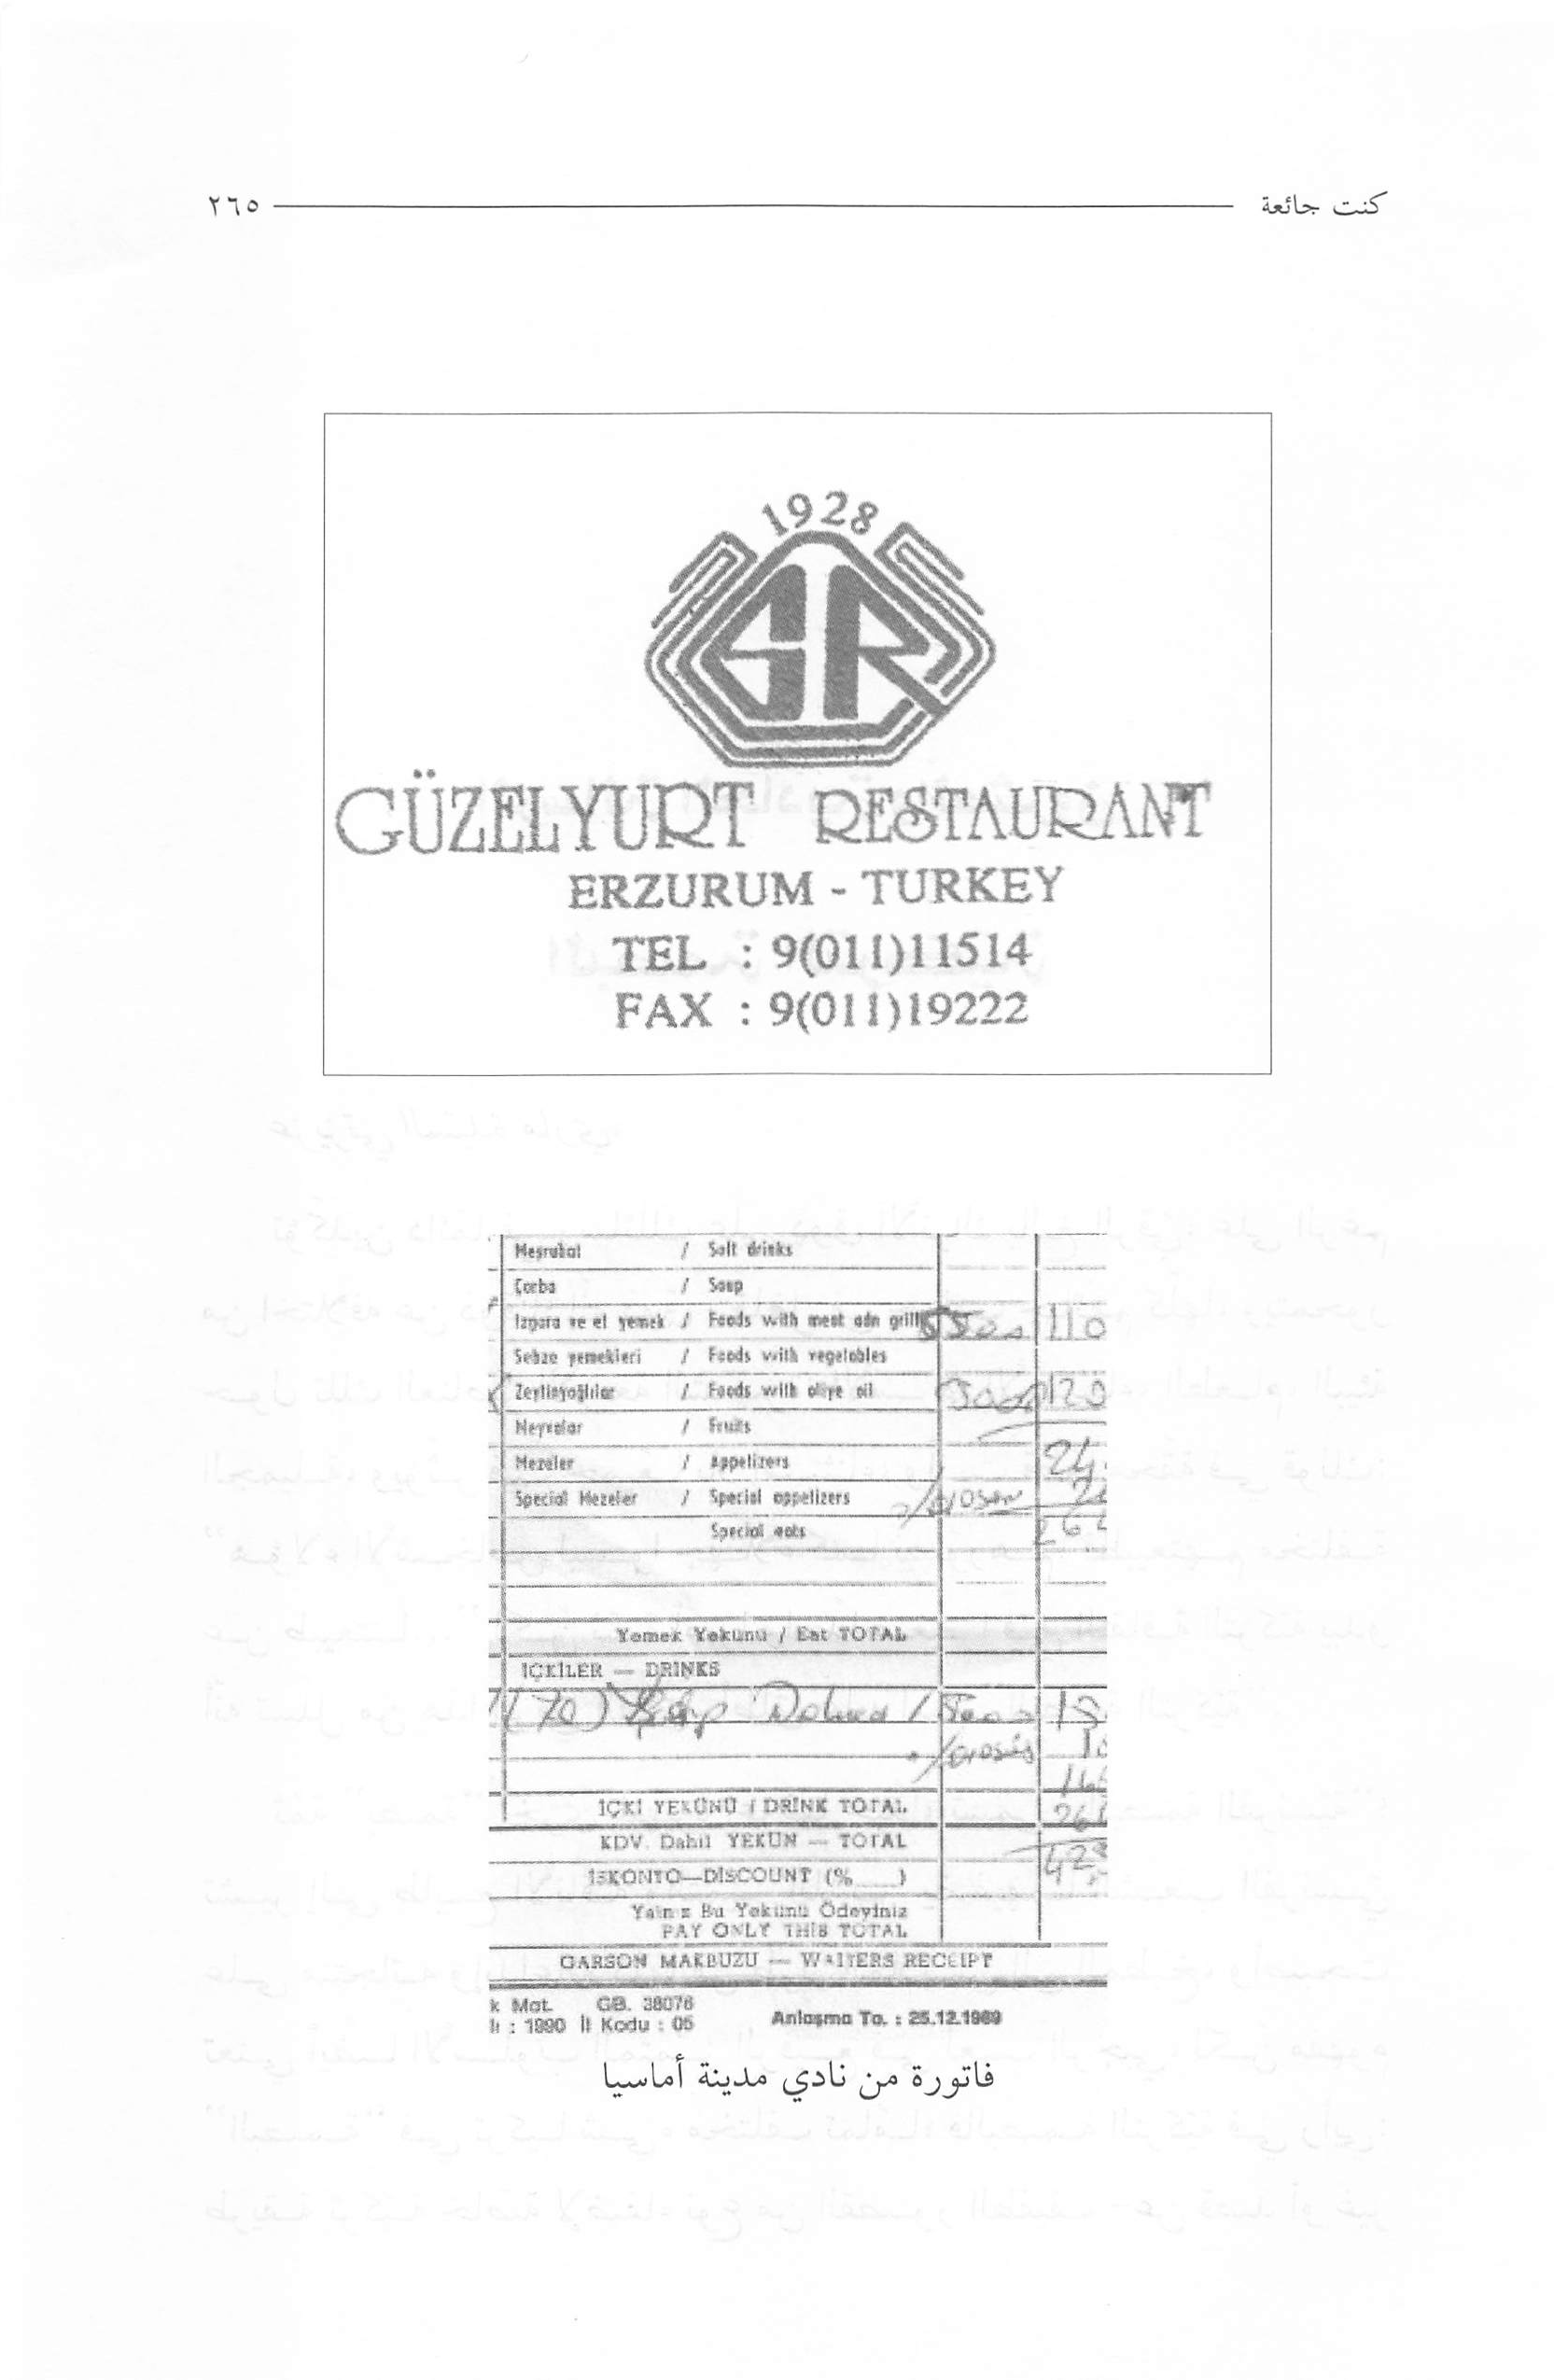 كنت جائعة ٢٦٥
1928
GR
GÜZELYURT RESTAURANT
ERZURUM - TURKEY
TEL : 9(011)11514
FAX : 9(011)19222
Meşrubat / Soft drinks
Çorba / Soup
Izgara ve et yemek / Foods with meat adn grill 110
Sebze yemekleri / Foods with vegetables
Zeytinyağlılar / Foods with olive oil 120
Meyvalar / Fruits
Mezeler / Appetizers 24
Special Mezeler / Special appetizers
Special eats
Yemek Yekûnu / Eat TOTAL
İÇKİLER — DRINKS
(70)
İÇKİ YEKÜNÜ / DRİNK TOTAL
KDV. Dahil YEKÜN — TOTAL
İSKONTO—DİSCOUNT (%___)
Yalnız Bu Yekünü Ödeyiniz
PAY ONLY THİS TOTAL
GARSON MAKBUZU — WAITERS RECEIPT
k Mat. GB. 38076
lı : 1990 İl Kodu : 05 Anlaşma Ta. : 25.12.1989
فاتورة من نادي مدينة أماسيا